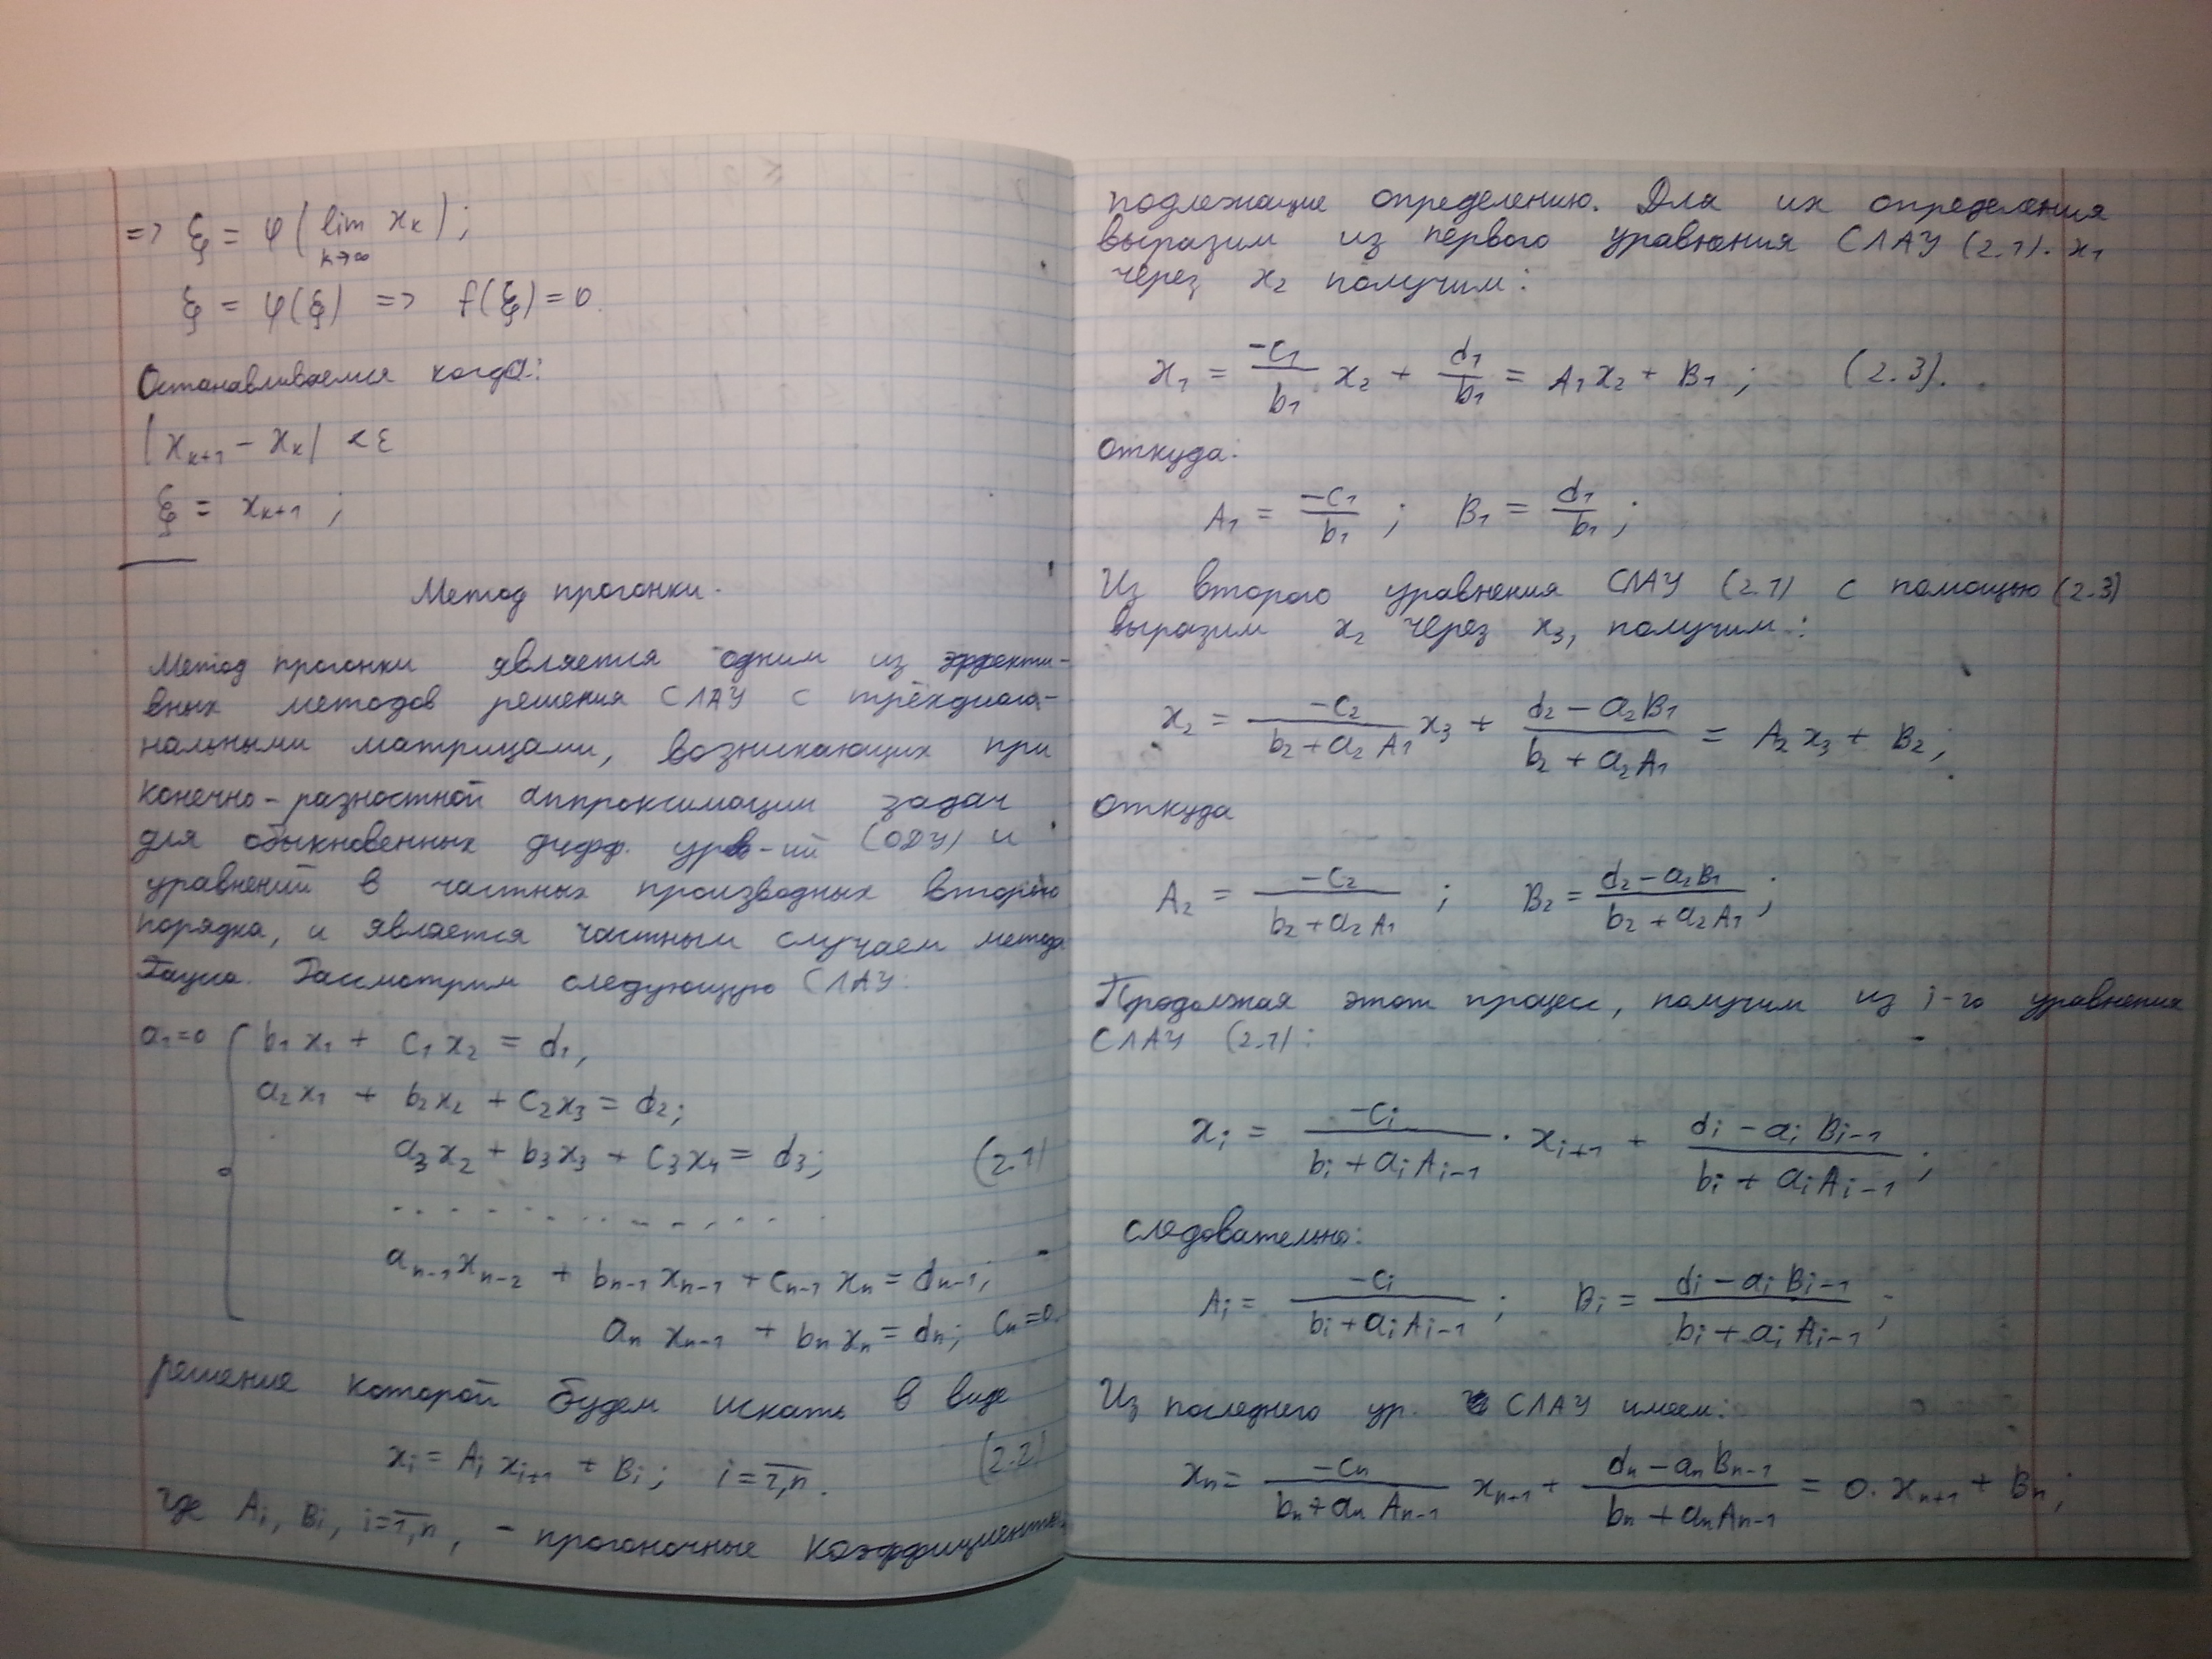 => ξ = φ(lim xₖ);
k→∞
ξ = φ(ξ) => f(ξ) = 0.
Останавливаемся когда:
|xₖ₊₁ − xₖ| < ε
ξ = xₖ₊₁ ;
Метод прогонки.
Метод прогонки является одним из эффекти-
вных методов решения СЛАУ с трёхдиаго-
нальными матрицами, возникающих при
конечно-разностной аппроксимации задач
для обыкновенных дифф. урв-ий (ОДУ) и
уравнений в частных производных второго
порядка, и является частным случаем метода
Гаусса. Рассмотрим следующую СЛАУ:
a₁=0 { b₁x₁ + c₁x₂ = d₁,
a₂x₁ + b₂x₂ + c₂x₃ = d₂;
a₃x₂ + b₃x₃ + c₃x₄ = d₃; (2.1)
. . . . . . . . . . . . .
aₙ₋₁xₙ₋₂ + bₙ₋₁xₙ₋₁ + cₙ₋₁xₙ = dₙ₋₁;
aₙxₙ₋₁ + bₙxₙ = dₙ; cₙ=0.
решение которой будем искать в виде
xᵢ = Aᵢxᵢ₊₁ + Bᵢ; i = 1,n. (2.2)
где Aᵢ, Bᵢ, i=1,n, - прогоночные коэффициенты,
подлежащие определению. Для их определения
выразим из первого уравнения СЛАУ (2.1). x₁
через x₂ получим:
x₁ = −c₁/b₁ x₂ + d₁/b₁ = A₁x₂ + B₁ ; (2.3).
откуда:
A₁ = −c₁/b₁ ; B₁ = d₁/b₁ ;
Из второго уравнения СЛАУ (2.1) с помощью (2.3)
выразим x₂ через x₃, получим:
x₂ = −c₂/(b₂+a₂A₁) x₃ + (d₂−a₂B₁)/(b₂+a₂A₁) = A₂x₃ + B₂;
откуда
A₂ = −c₂/(b₂+a₂A₁) ; B₂ = (d₂−a₂B₁)/(b₂+a₂A₁) ;
Продолжая этот процесс, получим из i-го уравнения
СЛАУ (2.1):
xᵢ = −cᵢ/(bᵢ+aᵢAᵢ₋₁) · xᵢ₊₁ + (dᵢ−aᵢBᵢ₋₁)/(bᵢ+aᵢAᵢ₋₁) ;
следовательно:
Aᵢ = −cᵢ/(bᵢ+aᵢAᵢ₋₁) ; Bᵢ = (dᵢ−aᵢBᵢ₋₁)/(bᵢ+aᵢAᵢ₋₁) ;
Из последнего ур. СЛАУ имеем:
xₙ = −cₙ/(bₙ+aₙAₙ₋₁) xₙ₊₁ + (dₙ−aₙBₙ₋₁)/(bₙ+aₙAₙ₋₁) = 0·xₙ₊₁ + Bₙ;